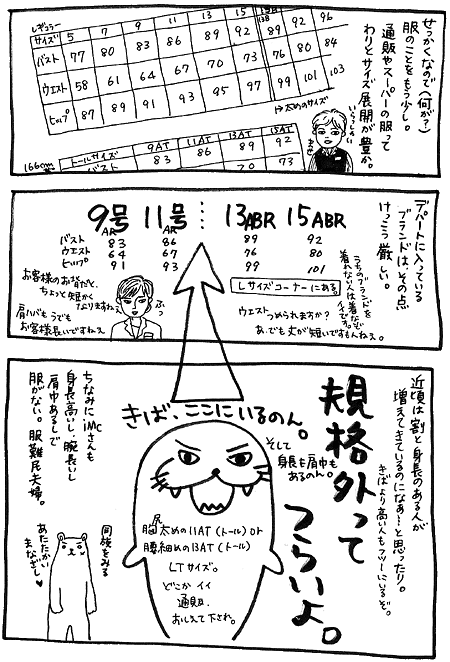 せっかくなので(何が?)
服のことをもう少し。
通販やスーパーの服って
わりとサイズ展開が豊か。
レギュラー
サイズ 5 7 9 11 13 15 89 92 96
バスト 77 80 83 86 89 92 76 80 84
ウエスト 58 61 64 67 70 73 99 101 103
ヒップ 87 89 91 93 95 97
→太めのサイズ
いらっしゃい
ませ
166cm
トールサイズ 9AT 11AT 13AT 15AT
バスト 83 86 89 92
70 73
デパートに入っている
ブランドは、その点
けっこう厳しい。
9号 11号 … 13ABR 15ABR
AR AR
バスト 83 86 89 92
ウエスト 64 67 76 80
ヒップ 91 93 99 101
Lサイズコーナーにある。
うちのブランドを
着れない人は着なくて
イイです。
お客様のお背だと、
ちょっと短かく
なりますねぇ
ふっ
肩ハバもうでも
お客様長いですねぇ
ウエストつめられますか?
あ、でも丈が短いですもんねぇ。
近頃は割と身長のある人が
増えてきているのになぁ…と思ったり。
きばより高い人もフツーにいるぞ。
規格外って
つらいよ。
きば、ここにいるのん。
そして
身長も肩巾も
あるのん。
尻
胸太めの11AT(トール)or
腰細めの13AT(トール)
LTサイズ。
どこかイイ
通販、
おしえて下され。
ちなみにiMcさんも
身長高いし、腕長いし
肩巾あるしで
服がない。服難民夫婦。
同族をみる
あたたかい
まなざし♥